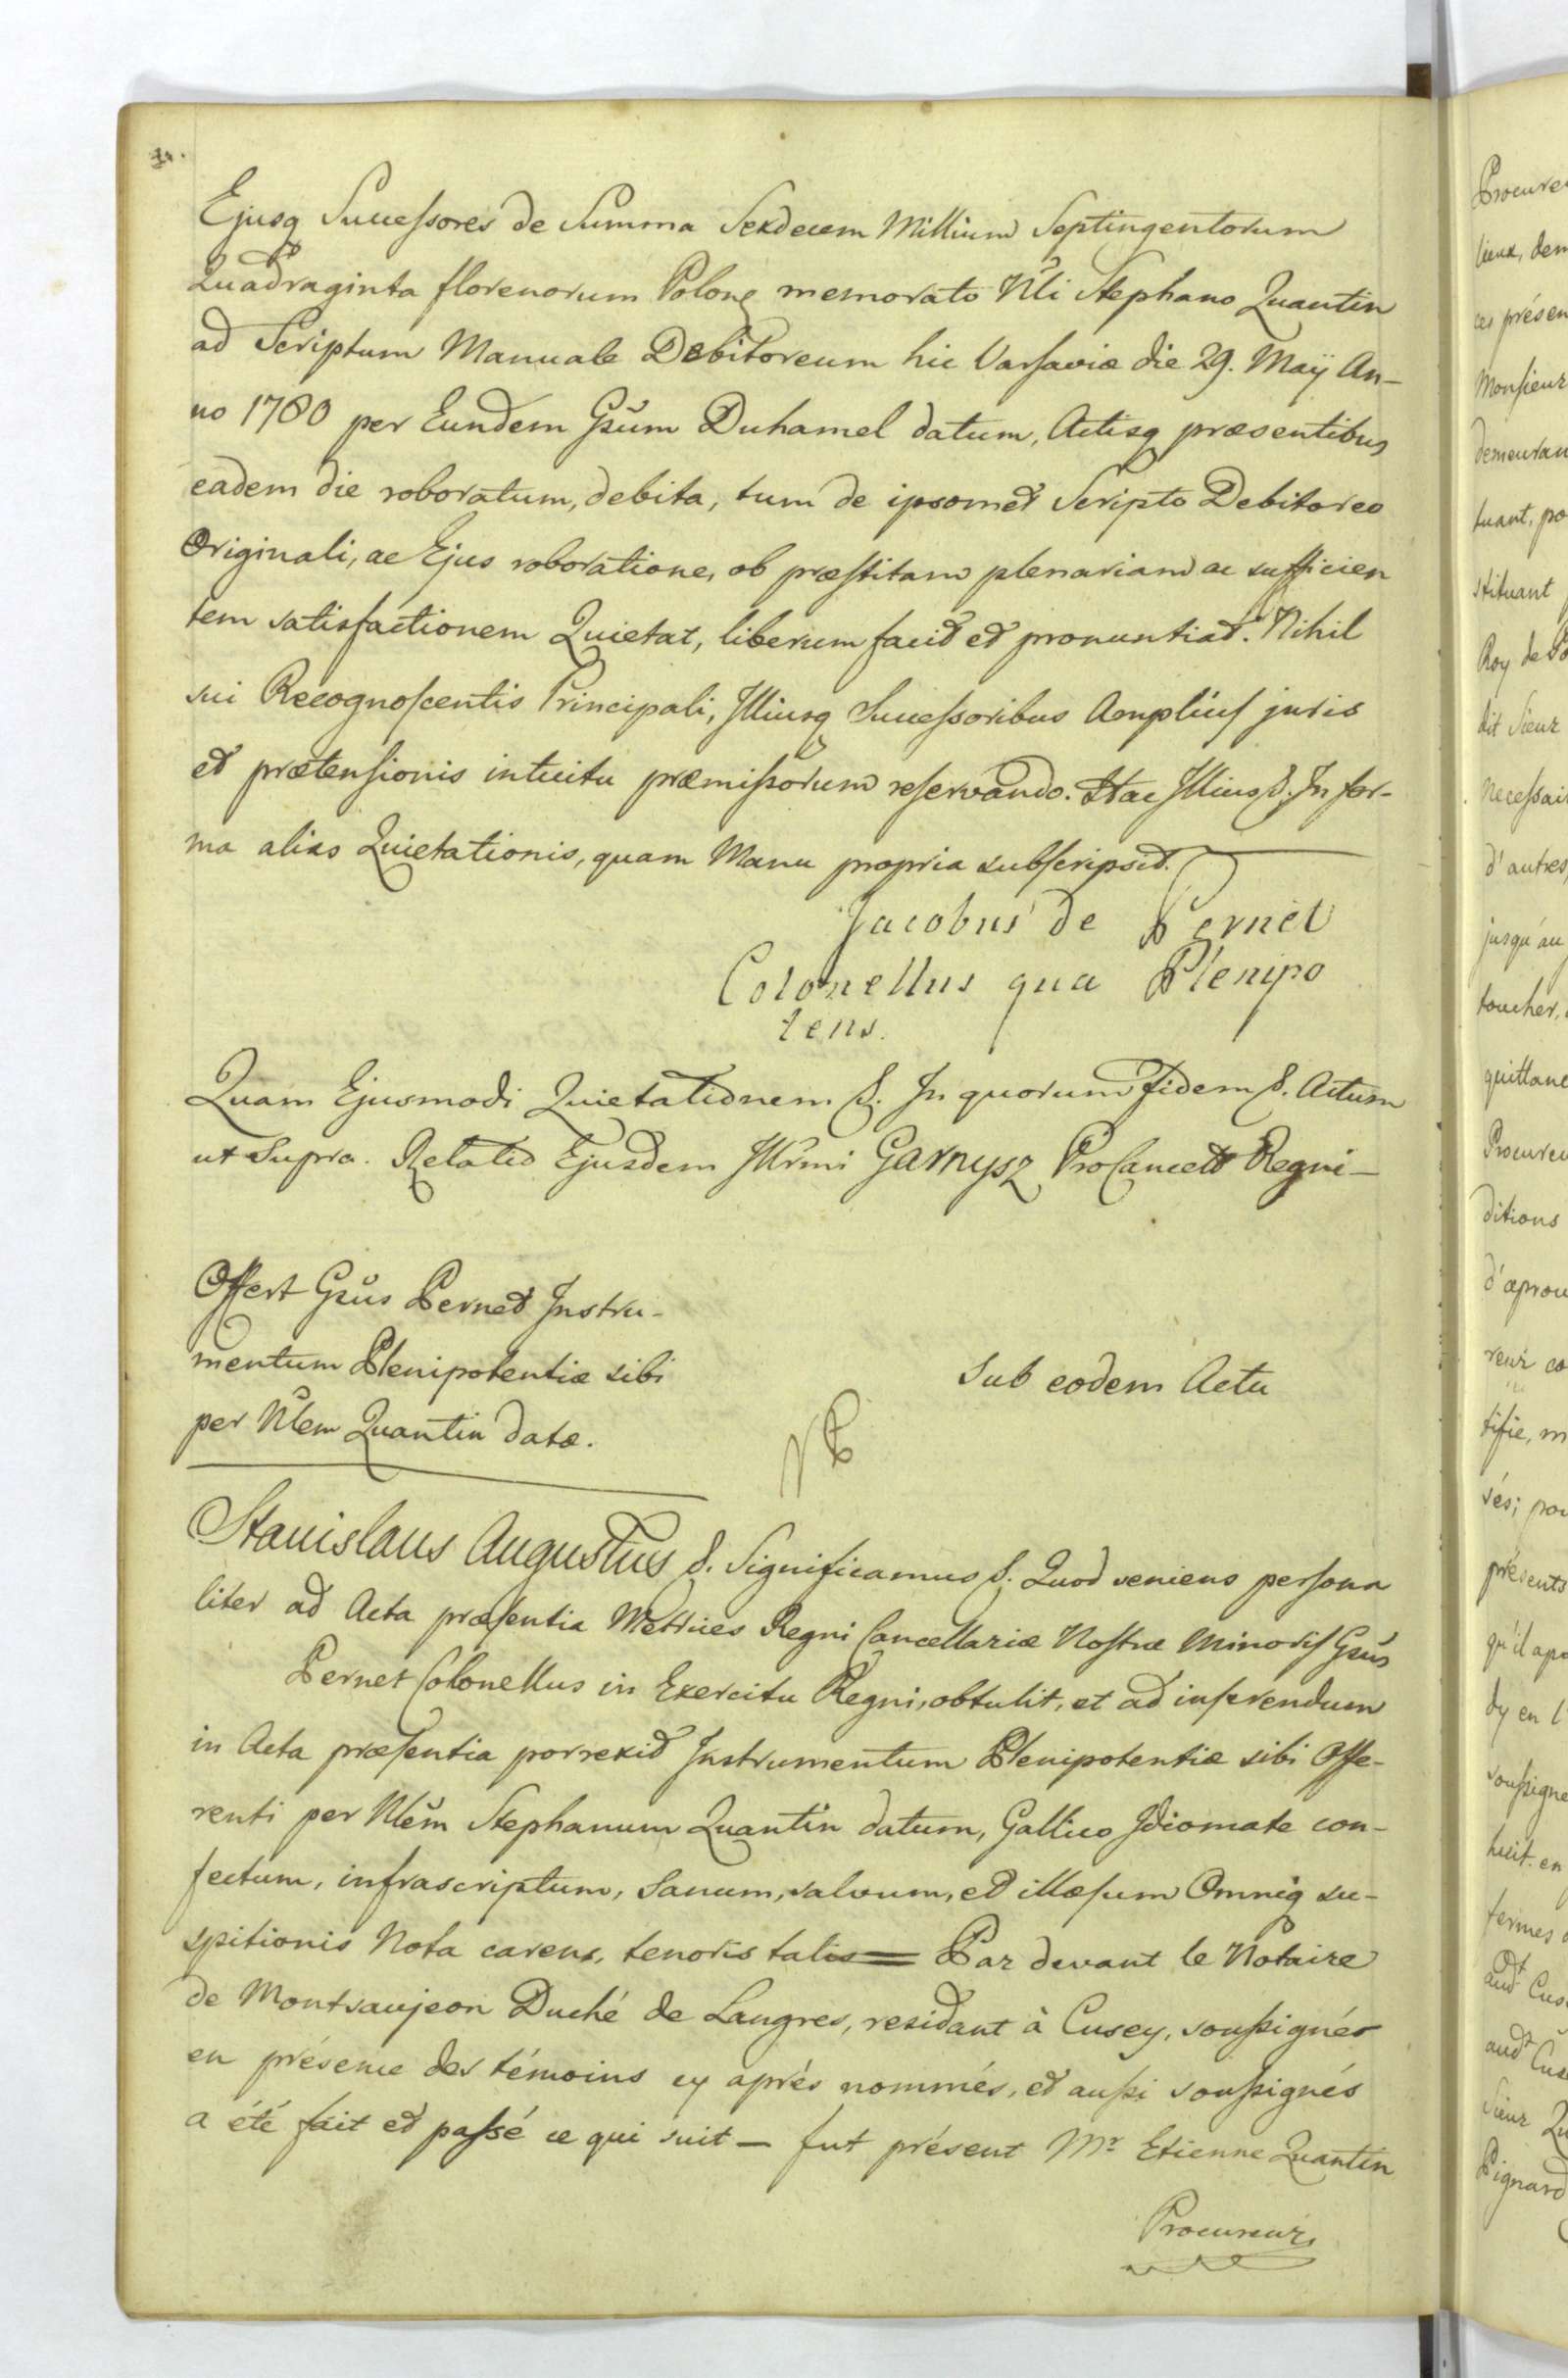 Ejusq Successores de Summa Sexdecem Millium Septingentorum
Quadraginta florenorum Polonͺ memorato Nli Stephano Quantin
ad Scriptum Manuale Debitoreum hic Varsaviæ die 29. Maÿ An-
no 1780 per Eundem Gsum Duhamel datum, Actisq præsentibus
eadem die roboratum, debita, tum de ipsomet Scripto Debitoreo
Originali, ac Ejus roboratione, ob præstitam plenariam ac sufficien
tem satisfactionem Quietat, liberum facit et pronuntiat. Nihil
sui Recognoscentis Principali, Illiusq Successoribus Amplius juris
et prætensionis intuitu præmissorum reservando. Hac Illius &. In for-
ma alias Quietationis, quam Manu propria subscripsit.
Jacobus de Pernet
Colonellus qua Plenipo
tens.
Quam Ejusmodi Quietationem &. In quorum fidem &. Actum
ut Supra. Relatio Ejusdem Illrmi Garnysz ProCancell Regni-
Offert Gsus Pernet Instru-
mentum Plenipotentiæ sibi
per Nlem Quantin datæ.
Sub eodem Actu
Stanislaus Augustus &. Significamus &. Quod veniens persona
liter ad Acta præsentia Metrices Regni Cancellariæ Nostræ Minoris Gsus
Pernet Colonellus in Exercitu Regni, obtulit, et ad inserendum
in Acta præsentia porrexit Instrumentum Plenipotentiæ sibi Offe-
renti per Nlem Stephanum Quantin datum, Gallico Idiomate con-
fectum, infrascriptum, Sanum, salvum, et illæsum Omniq su-
spitionis Nota carens, tenoris talis = Par devant le Notaire
de Montsaujeon Duché de Langres, residant à Cusey, soussignés
en présence des témoins cy aprés nommés, et aussi soussignés
a été fait et passé ce qui suit — fut présent Mr Etienne Quantin
Procureur
Procure
lieux, dem
ces présen
Monsieur
demeuran
tuant, po
stituant
Roy de Po
dit Sieur
necessai
d'autres,
jusqu'au
toucher,
quittanc
Procureu
ditions
d'aprou
reur co
tifie, m
sés; pou
présents
qu'il apa
dy en l'
soussigne
huit. en
termes
audt Cus
audt Cus
Sieur Qu
Pignard